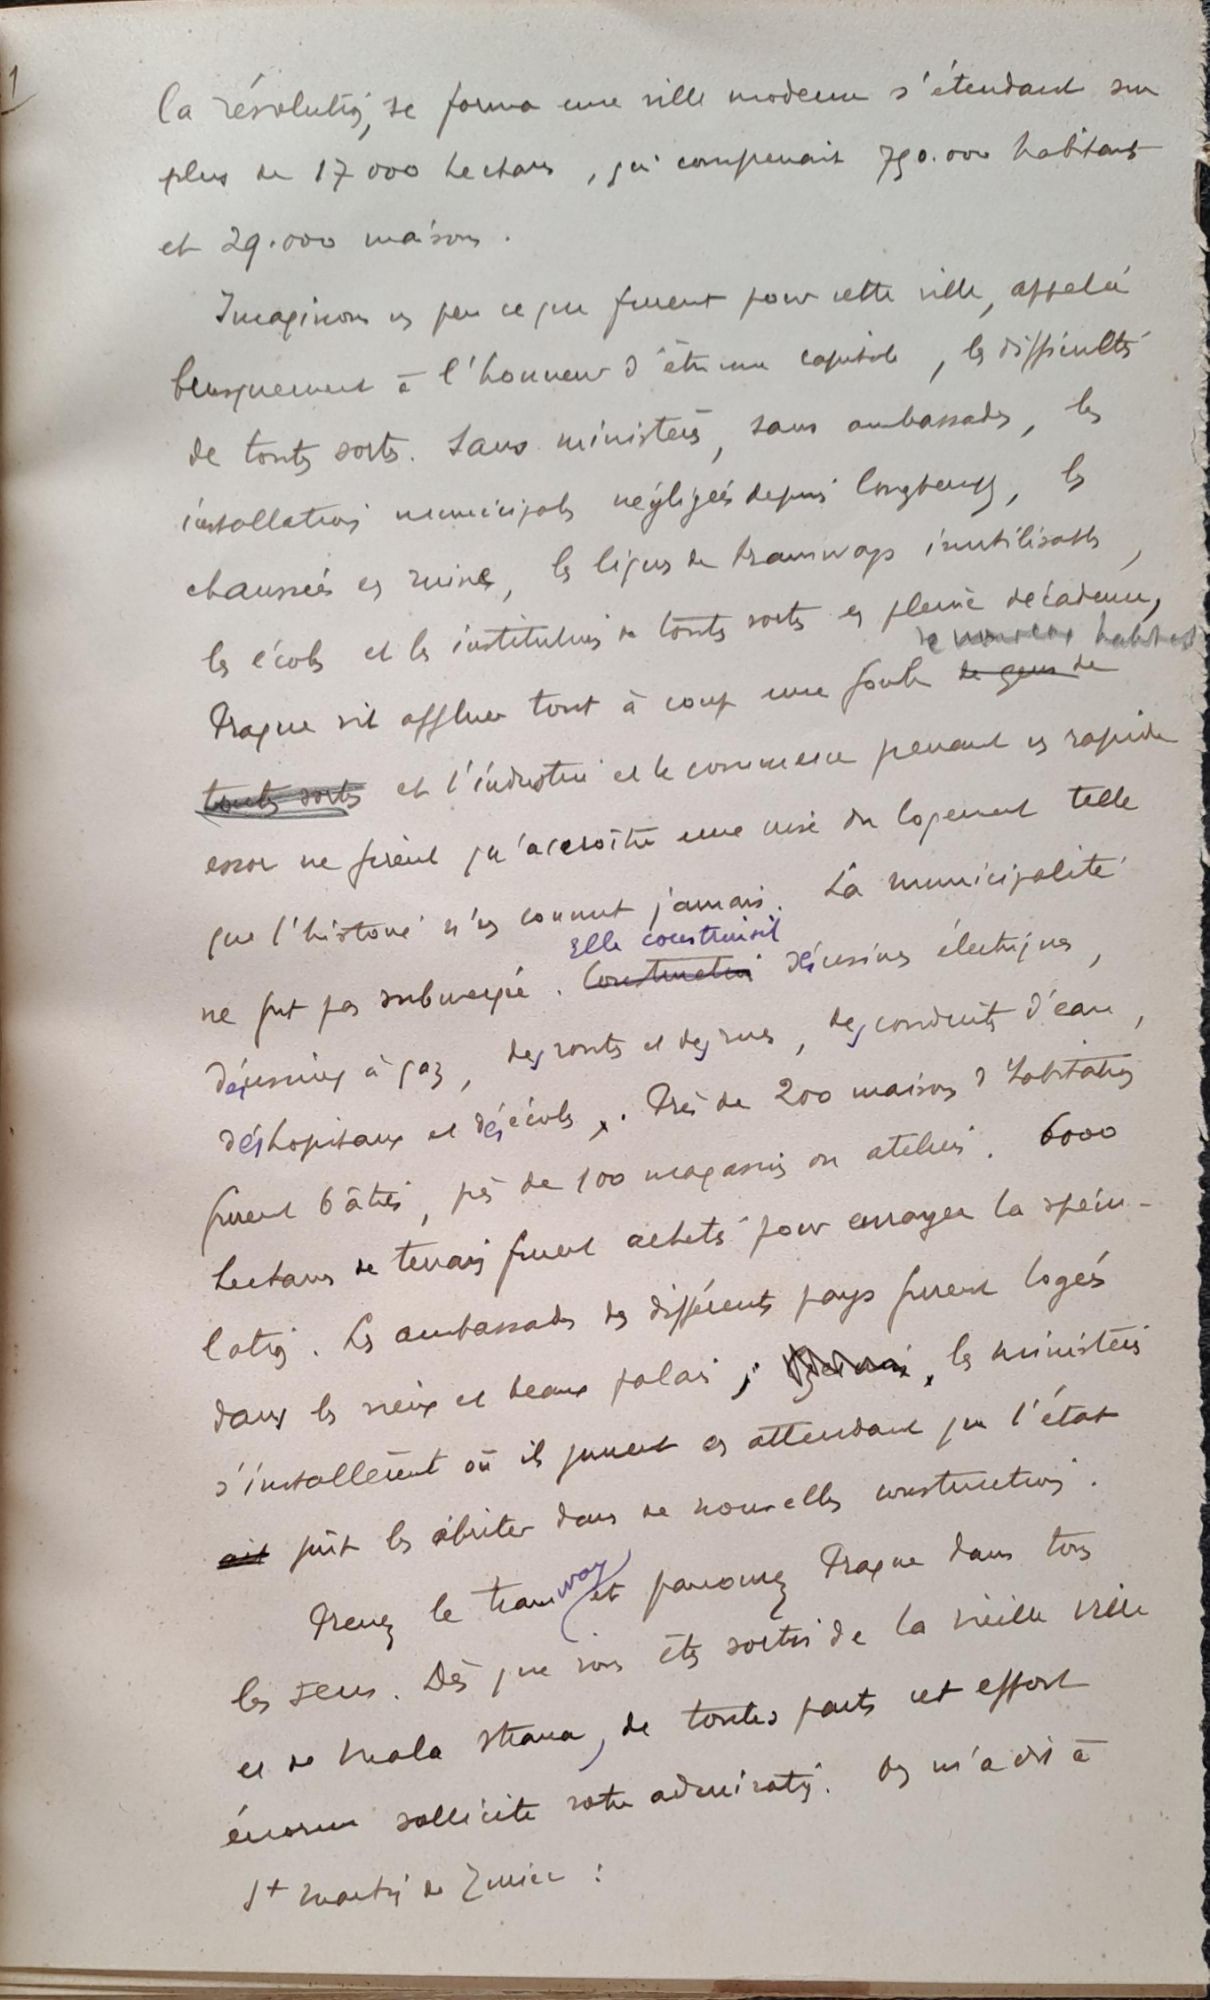 1
la révolution, se forma une ville moderne s'étendant sur
plus de 17 000 hectares, qui comprenait 790.000 habitants
et 29.000 maisons.
Imaginons un peu ce que furent pour cette ville, appelée
brusquement à l'honneur d'être une capitale, les difficultés
de toutes sortes. Sans ministères, sans ambassades, les
installations municipales négligées depuis longtemps, les
chaussées en ruines, les lignes de tramways inutilisables,
les écoles et les institutions de toutes sortes en pleine décadence,
de nouveaux habitants
Prague vit affluer tout à coup une foule de gens de
toutes sortes et l'industrie et le commerce prenant un rapide
essor ne firent qu'accroître une crise du logement telle
que l'histoire n'en connut jamais. La municipalité
Elle construisit
ne fut pas submergée. Construction des usines électriques,
des usines à gaz, des ponts et des rues, des conduites d'eau,
des hopitaux et des écoles. Près de 200 maisons d'habitation
furent bâties, près de 100 magasins ou ateliers. 6000
hectares de terrains furent achetés pour enrayer la spécu-
lation. Les ambassades des différents pays furent logées
dans les vieux et beaux palais, les ministères
s'installèrent où ils purent en attendant que l'état
ait pût les abriter dans de nouvelles constructions.
Prenez le tramway et parcourez Prague dans tous
les sens. Dès que vous êtes sortis de la vieille ville
et de Mala Strana, de toutes parts cet effort
énorme sollicite votre admiration. On m'a dit à
St Martin de